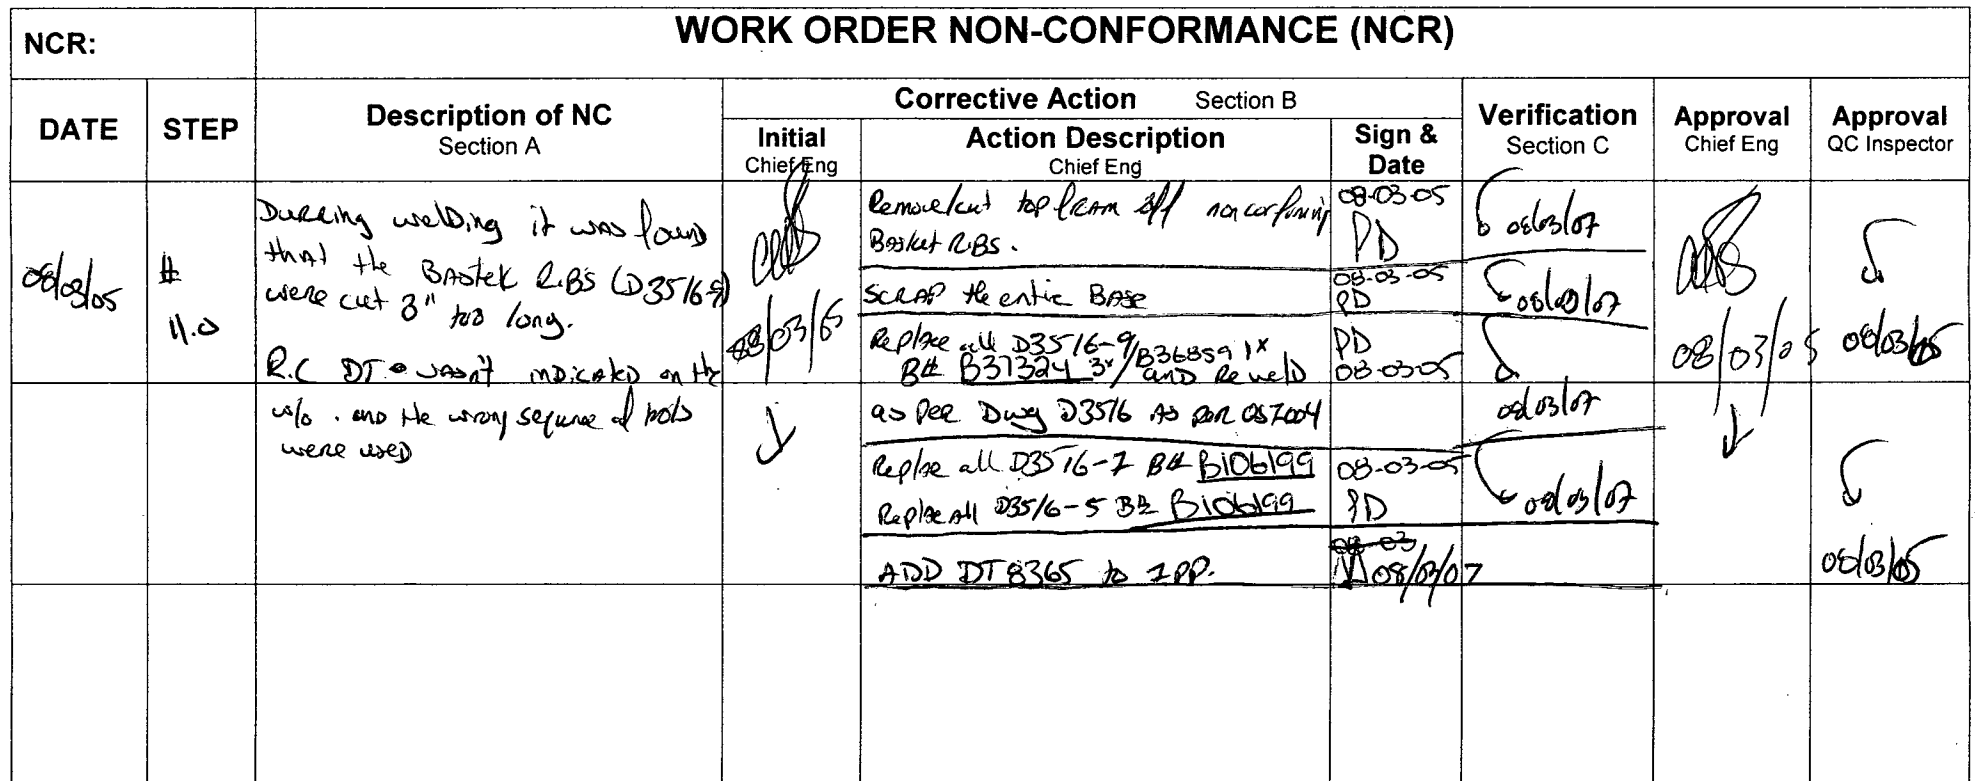 NCR:
WORK ORDER NON-CONFORMANCE (NCR)
DATE
STEP
Description of NC
Section A
Corrective Action Section B
Initial
Chief Eng
Action Description
Chief Eng
Sign &
Date
Verification
Section C
Approval
Chief Eng
Approval
QC Inspector
08/03/05
#
11.0
Durring welding it was found
that the Bastek Ribs (D3516-9)
were cut 3" too long.
R.C DT wasn't indicated on the
w/o . and the wrong sequence of
were used
08/03/05
Remove/cut top off non conforming
Basket Ribs.
08-03-05
PD
08/03/07
Scrap the entire Base
08-03-05
PD
08/03/07
Replace all D3516-9/B36859 1x
B# B37324 3x/ and Reweld
PD
08-03-05
as Per Dwg D3516 As per
08/03/07
Replace all D3516-7 B# B106199
08-03-05
Replace all D3516-5 B# B106199
PD
08/03/07
ADD DT8365 to IPP.
08-03
08/03/07
08/03/05
08/03/05
08/03/05